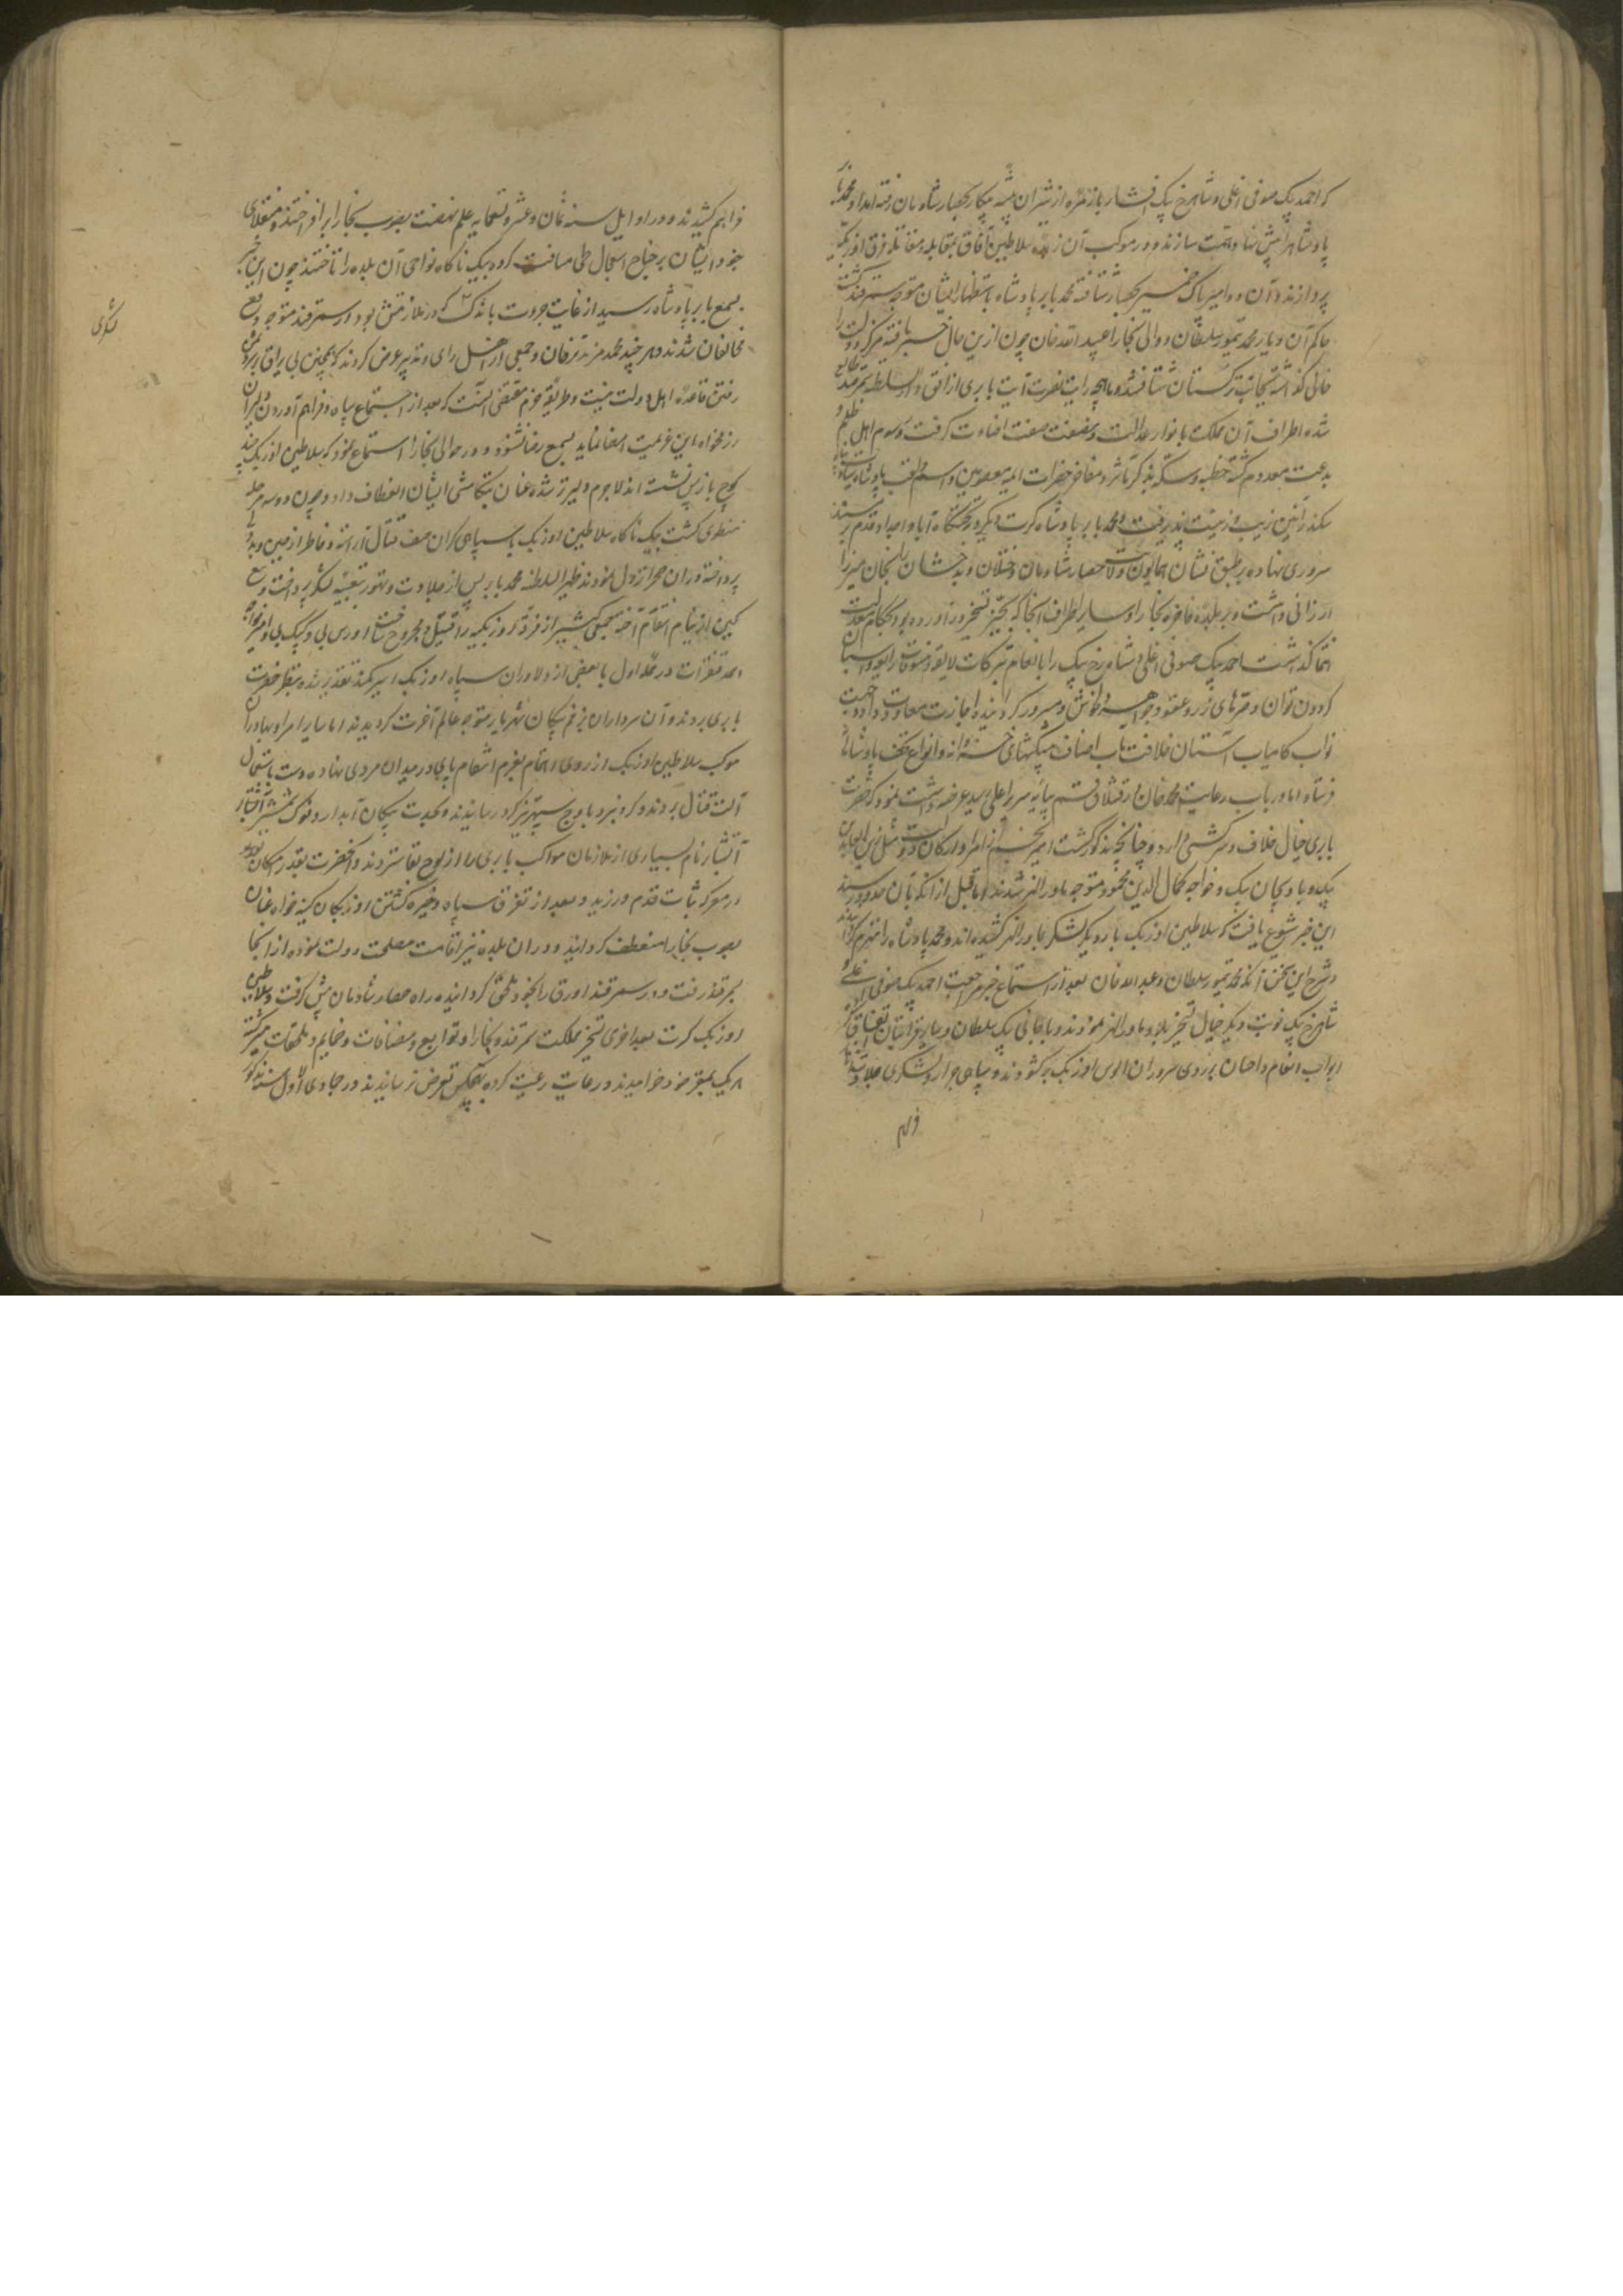 که احمد بیک صوفی اغلی و شاهرخ بیک افشار با زمره از شیران بیشه پیکار بحصار شادمان رفته امداد محمد بابر
پادشاه را پیش نهاد همت سازند و در موکب آن زبده سلاطین آفاق بمقابله و مقاتله فرق اوزبکیه
پردازند و آن دو امیر پاک ضمیر بحصار شتافته محمد بابر پادشاه باستظهار ایشان متوجه سمرقند گشت
حاکم آن دیار محمد تیمور سلطان و والی بخارا عبید الله خان چون ازین حال خبر یافته مرکز دولت را
خالی گذاشته بجانب ترکستان شتافتند و ماهچه رایت نصرت آیت بابری از افق دار السلطنه سمرقند طالع
شده اطراف آن مملکت بانوار عدالت و نصفت صفت اضاءت گرفت و رسوم اهل ظلم و
بدعت معدوم گشته خطبه و سکه بذکر مآثر و مفاخر حضرات ائمه معصومین و اسم و لقب پادشاه
سکندر آئین زیب و زینت پذیرفت و محمد بابر پادشاه کرت دیگر در تختگاه آبا و اجداد قدم بر مسند
سروری نهاده بر طبق نشان همایون ولایت حصار شادمان و ختلان و بدخشان را بخان میرزا
ارزانی داشت و بر بلده فاخره بخارا و سایر اطراف آنجا که بحیز تسخیر در آورده بود حکام معدلت
انتما گذاشت احمد بیک صوفی اغلی و شاه رخ بیک را بانعام تبرکات لایقه و تنسوقات رایقه و اسبان
گردون توان و صرهای زر و عقود جواهر خوش و مسرور گردانیده اجازت معاودت داد و بجهت
نواب کامیاب آستان خلافت مآب اصناف پیشکشهای خسروانه و انواع تحف پادشاهانه
فرستاد اما در باب رعایت محمد خان در قشلاق قم بپایه سریر اعلی رسید عرضه داشت نمود که حضرت
بابری خیال خلاف و سرکشی دارد و چنانچه مذکور گشت امیر نجم از امرا و ارکان دولت مثل زین العابدین
بیک و بادنجان بیک و خواجه کمال الدین محمود متوجه ماوراءالنهر شدند اما قبل از آنکه بآن حدود رسند
این خبر شیوع یافت که سلاطین اوزبک بار دیگر لشکر بماوراءالنهر کشیده اند و محمد پادشاه را منهزم گردانیدند
و شرح این سخن آنکه محمد تیمور سلطان و عبید الله خان بعد از استماع خبر مراجعت احمد بیک صوفی اغلی و
شاهرخ بیک نوبت دیگر خیال تسخیر بلاد ماوراءالنهر نمودند و با جانی بیک سلطان و سایر اقرباء ایشان اتفاق کرده
ابواب انعام و احسان بر روی سروران الوس اوزبک برگشودند و سپاهی جرار و لشکری جلادت آثار
فراهم
فراهم کشیدند و در اوایل سنه ثمان و عشر و تسعمایه علم نهضت بصوب بخارا برافراختند و منقلای
جنود ایشان بر جناح استعجال طی مسافت کرده بیک ناگاه نواحی آن بلده را تاختند چون این خبر
بسمع بابر پادشاه رسید از غایت جرءت باندک لشکری که در ملازمتش بود در سمرقند متوجه دفع
مخالفان شدند هر چند محمد مزید ترخان و جمعی از اهل رای و تدبیر عرض کردند که بچنین بی یراق بر سر دشمن
رفتن قاعده اهل دولت نیست و طریقه حزم مقتضی آنست که بعد از اجتماع سپاه و فراهم آوردن دلیران
رزمخواه باین عزیمت امضا نماید بسمع رضا نشنود و در حوالی بخارا استماع نمود که سلاطین اوزبک چند
کوچ باز پس نشسته اند لاجرم دلیرتر شده عنان بتکامشی ایشان انعطاف داد و چون دو سه مرحله
منطوی گشت بیک ناگاه سلاطین اوزبک با سپاهی گران صف قتال آراسته و خاطر از میمنه و میسره
پرداخته در آن صحرا نزول نمودند ظهیر السلطنه محمد بابر پس از جلادت و تهور بتعبیه لشکر پرداخت و تیغ
کین از نیام انتقام آخته جمعی کثیر از فرقه اوزبکیه را قتیل و مجروح ساخت اورس بی و کپک بی و امیر خواجه
احمد قنغرات در حمله اول با بعضی از دلاوران سپاه اوزبک اسیر کمند تقدیر شده بنظر حضرت
بابری بردند و آن سرداران بزخم پیکان شهریار متوجه عالم آخرت گردیدند اما سایر امرا و بهادران
موکب سلاطین اوزبک از روی اهتمام بعزم انتقام پای در میدان مردی نهاده دست باستعمال
آلت قتال بردند و گرد نبرد باوج سپهر تیز گرد رسانیدند و بحدت پیکان آبدار و نوک شمشیر آتشبار
آتشبار نام بسیاری از ملازمان مواکب بابری را از لوح بقا ستردند و آنحضرت بقدر امکان
در معرکه ثبات قدم ورزید و بعد از تفرق سپاه و خیره گشتن اوزبکان کینه خواه عنان
بصوب بخارا منعطف گردانید و در آن بلده نیز اقامت مصلحت دولت ندیده از آنجا
بسمرقند رفت و در سمرقند اورق را بخود ملحق گردانیده راه حصار شادمان پیش گرفت و سلاطین
اوزبک کرت بعد اخری تسخیر مملکت سمرقند و بخارا و توابع و مضافات و ضمایم و ملحقات میسر گشته
هر یک بمقر خود خرامیدند و رعایت رعیت کرده بهیچکس تعرض نرسانیدند و در جمادی الاول سنه مذکور
لشکری